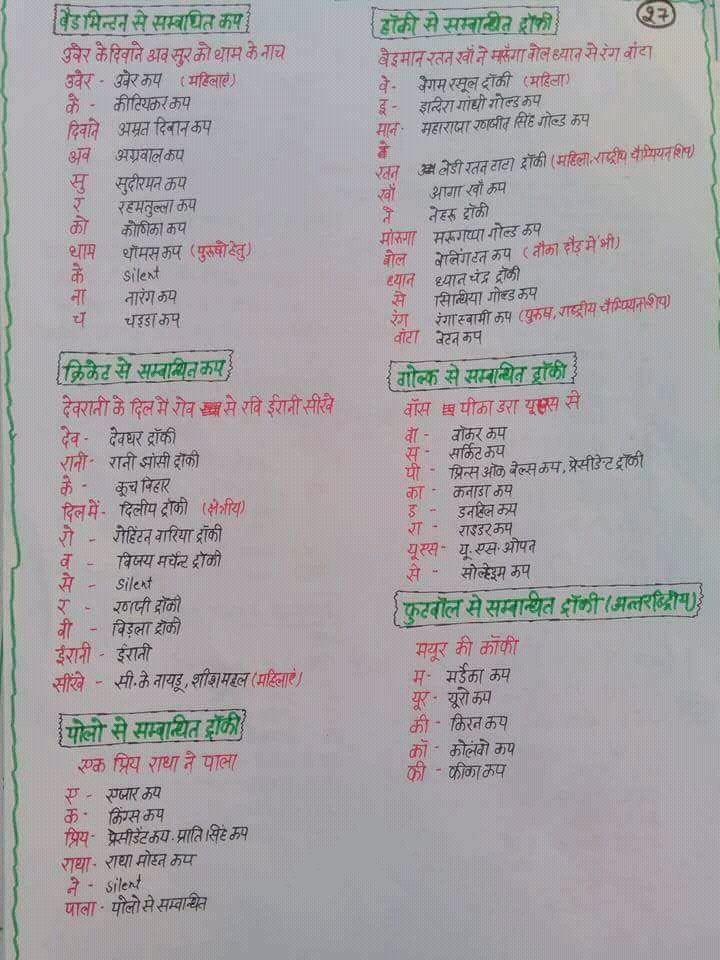 27
बैडमिन्टन से सम्बंधित कप
उवेर के दिवाने अव सुर को थाम के नाच
उवेर - उवेर कप (महिलाएं)
के - कीटियकर कप
दिवाने अमृत दिवान कप
अव अग्रवाल कप
सु सुदीरमन कप
र रहमतुल्ला कप
को कोणिका कप
थाम थॉमस कप (पुरुषो हेतु)
के silent
ना नारंग कप
च चड्डा कप
क्रिकेट से सम्बान्धित कप
देवरानी के दिल में रोव से रवि ईरानी सीखे
देव - देवधर ट्रॉफी
रानी - रानी झांसी ट्रॉफी
के - कूच विहार
दिल में - दिलीप ट्रॉफी (क्षेत्रीय)
रो - रोहिंटन वारिया ट्रॉफी
व - विजय मर्चेन्ट ट्रॉफी
से - silent
र - रणजी ट्रॉफी
वी - विड़ला ट्रॉफी
ईरानी - ईरानी
सीखे - सी.के नायडू, शीशमहल (महिलाएं)
पोलो से सम्बान्धित ट्रॉफी
एक प्रिय राधा ने पाला
ए - एजार कप
क - किंग्स कप
प्रिय - प्रेसीडेंट कप. प्राति सिंह कप
राधा - राधा मोहन कप
ने - silent
पाला - पोलो से सम्बान्धित
हॉकी से सम्बान्धित ट्रॉफी
वेइमान रतन खाँ ने मरुंगा वोल ध्यान से रंग वांटा
वे - वेगम रसूल ट्रॉफी (महिला)
इ - इन्दिरा गांधी गोल्ड कप
मान - महाराजा रणजीत सिंह गोल्ड कप
रतन लेडी रतन टाटा ट्रॉफी (महिला, राष्ट्रीय चैम्पियनशिप)
खाँ आगा खाँ कप
ने नेहरू ट्रॉफी
मोरुगा मरुगप्पा गोल्ड कप
वोल वेलिंगटन कप (नौका दौड़ में भी)
ध्यान ध्यान चंद्र ट्रॉफी
से सिन्धिया गोल्ड कप
रंग रंगास्वामी कप (पुरुष, राष्ट्रीय चैम्पियनशिप)
वांटा वेटन कप
गोल्फ से सम्बान्धित ट्रॉफी
वॉस पीका डरा यूएस से
वॉ - वॉकर कप
स - सर्किट कप
पी - प्रिन्स ऑफ वेल्स कप, प्रेसीडेन्ट ट्रॉफी
का - कनाडा कप
ड - डनहिल कप
रा - राइडर कप
यूएस - यू.एस. ओपन
से - सोल्हेइम कप
फुटवॉल से सम्वान्धित ट्रॉफी (अन्तर्राष्ट्रीय)
मयूर की कॉफी
म - मर्डेका कप
यूर - यूरो कप
की - किरन कप
कॉ - कोलंवो कप
फी - फीफा कप